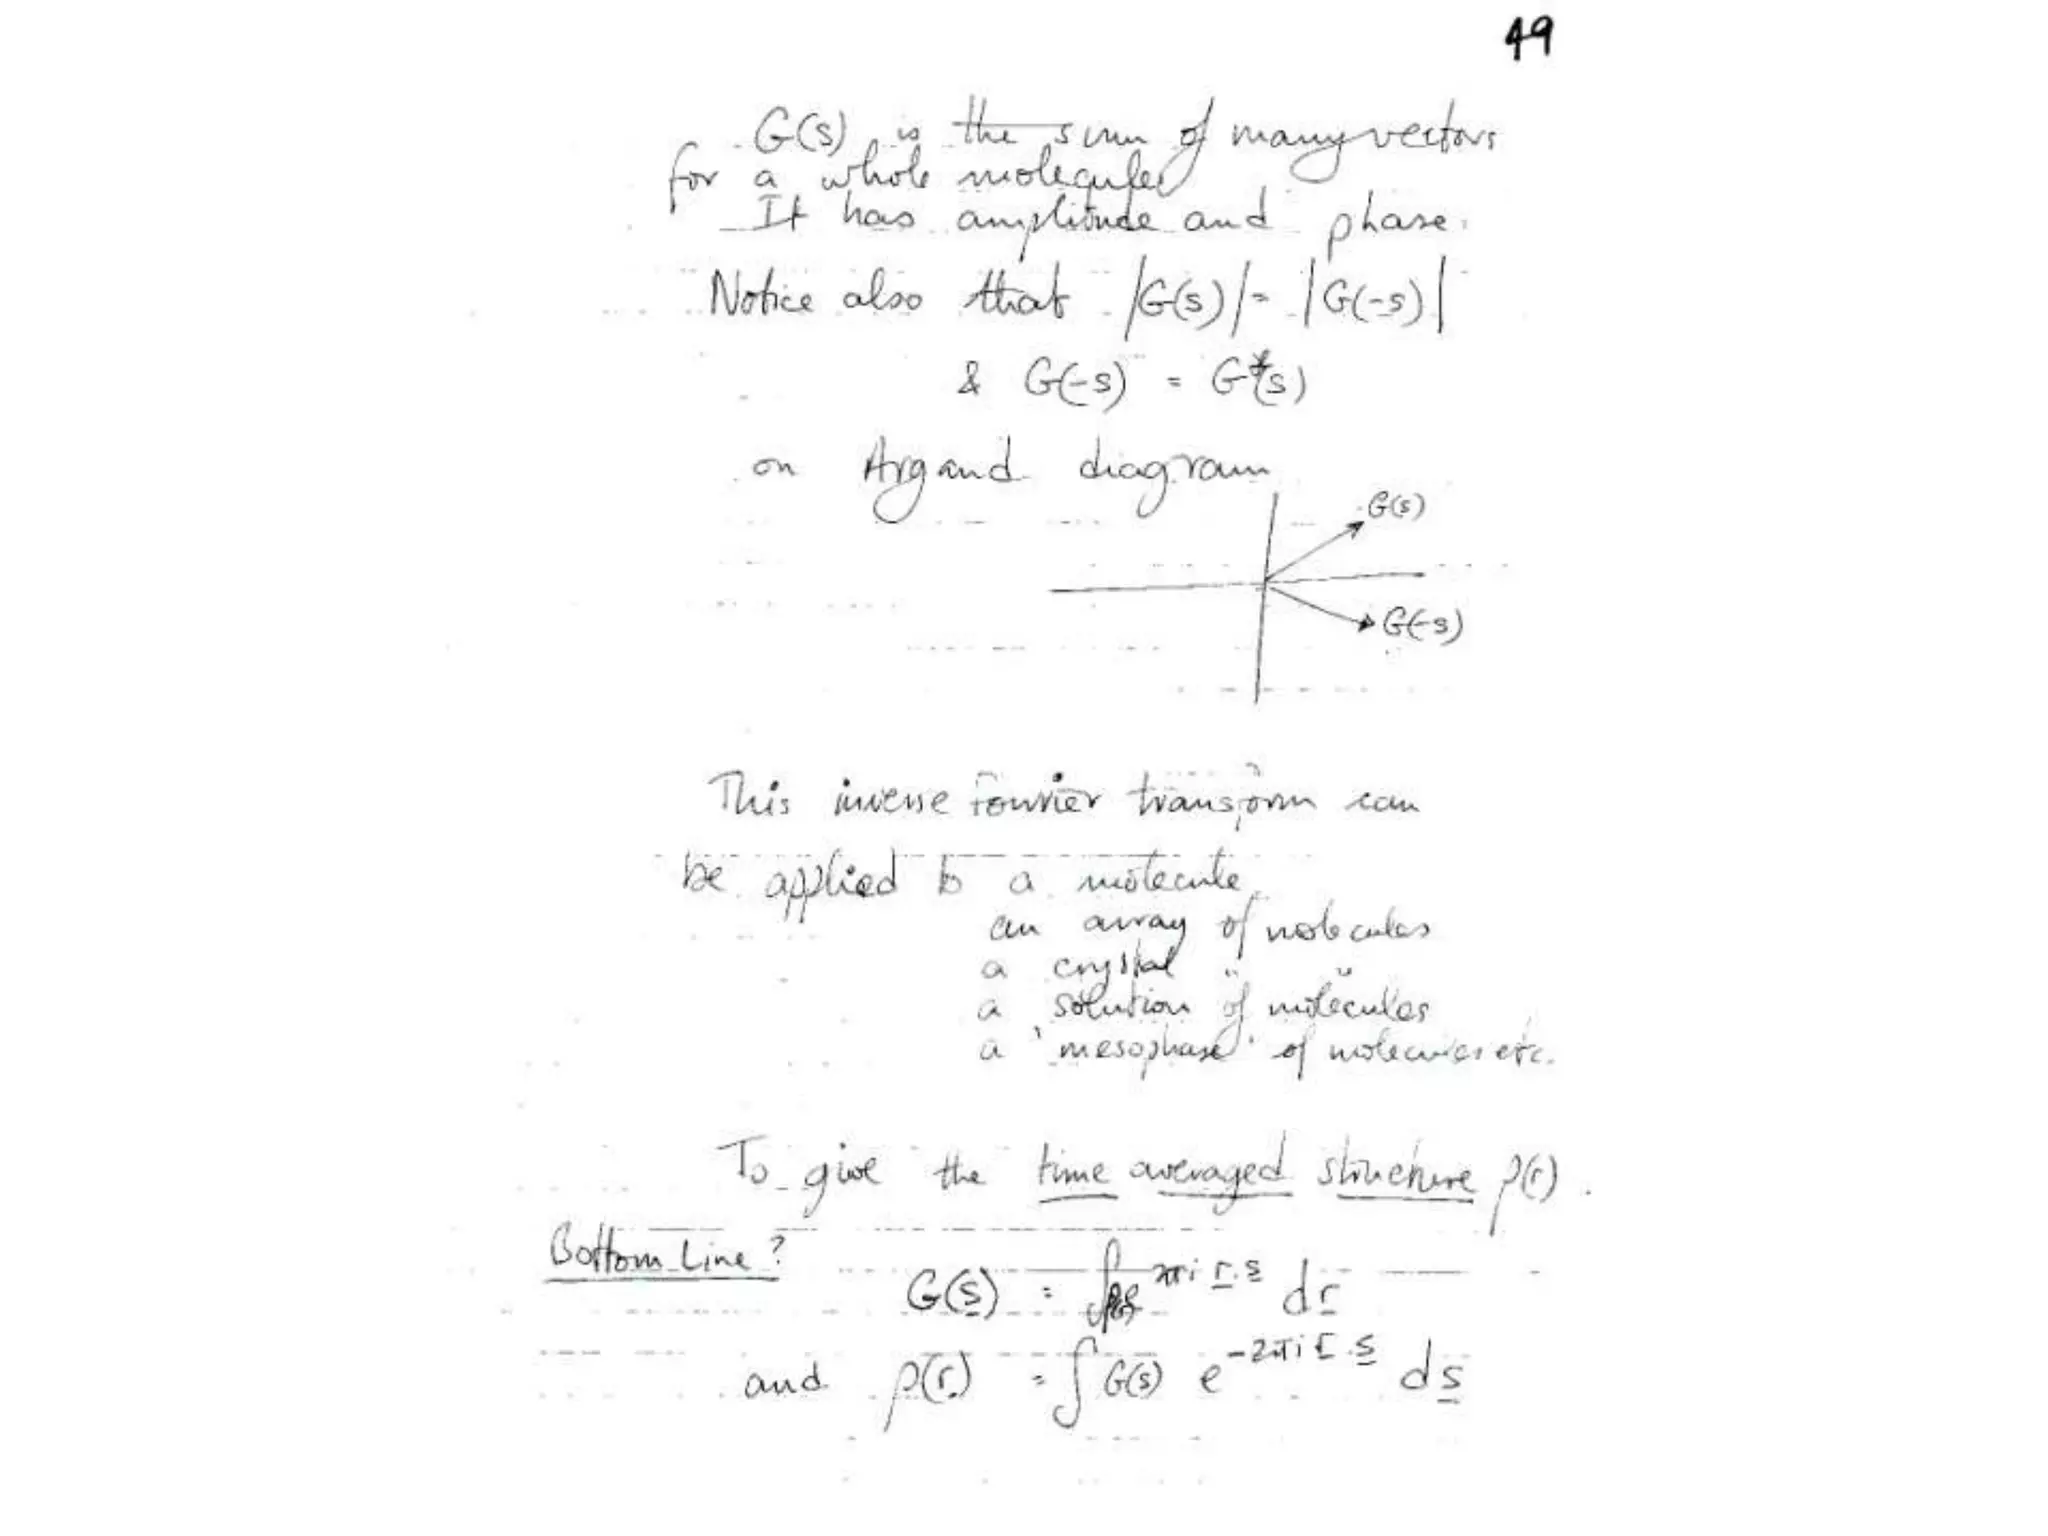 49
G(s) is the sum of many vectors
for a whole molecule
It has amplitude and phase.
Notice also that |G(s)| = |G(-s)|
& G(-s) = G*(s)
on Argand diagram
G(s)
G(-s)
This inverse Fourier transform can
be applied to a molecule
an array of molecules
a crystal " "
a solution of molecules
a 'mesophase' of molecules etc.
To give the time averaged structure ρ(r).
Bottom Line?
G(s) = ∫ 2πi r.s dr
and ρ(r) = ∫ G(s) e^{-2πi r.s} ds